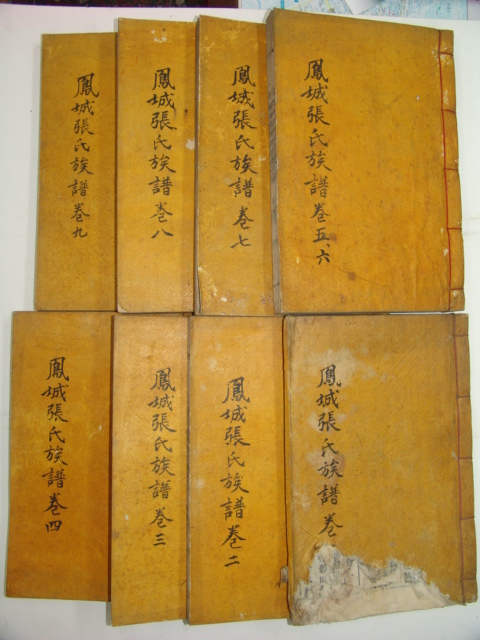 鳳城張氏族譜 卷五、六
鳳城張氏族譜 卷七
鳳城張氏族譜 卷八
鳳城張氏族譜 卷九
鳳城張氏族譜 卷
鳳城張氏族譜 卷二
鳳城張氏族譜 卷三
鳳城張氏族譜 卷四